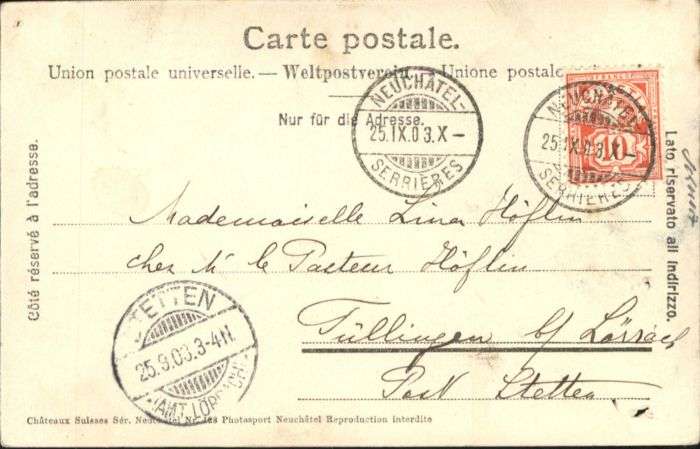 Carte postale.
Union postale universelle. — Weltpostverein — Unione postale
Nur für die Adresse.
NEUCHÂTEL-
25.IX.03.X–
SERRIÈRES
NEUCHÂTEL-
25.IX.03.X–
SERRIÈRES
10
Côté réservé à l'adresse.
Lato riservato all indirizzo.
Mademoiselle Lina Höflin
chez Mr le Pasteur Höflin
Tüllingen b/ Lörrach
Post Stetten
STETTEN
25.9.03.3-4N.
Châteaux Suisses Sér. Neuchâtel Photosport Neuchâtel Reproduction interdite